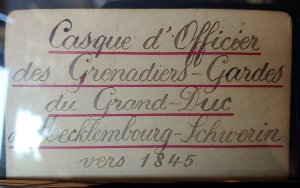 Casque d'Officier
des Grenadiers-Gardes
du Grand-Duc
de Mecklembourg-Schwerin
vers 1845